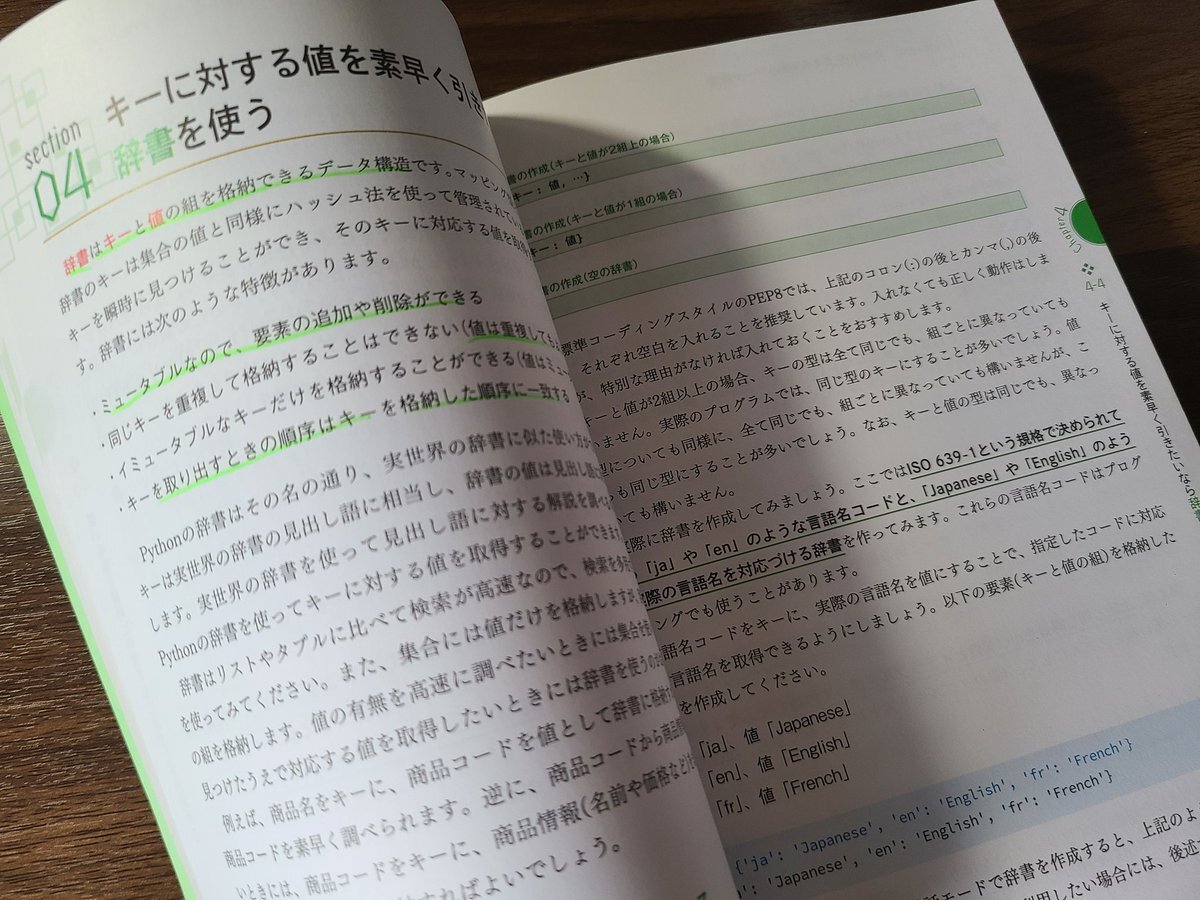 section
04
キーに対する値を素早く引き
辞書を使う
辞書はキーと値の組を格納できるデータ構造です。マッピング
辞書のキーは集合の値と同様にハッシュ法を使って管理されてい
キーを瞬時に見つけることができ、そのキーに対応する値を
す。辞書には次のような特徴があります。
・ミュータブルなので、要素の追加や削除ができる
・同じキーを重複して格納することはできない(値は重複しても
・イミュータブルなキーだけを格納することができる(値はミュ
・キーを取り出すときの順序はキーを格納した順序に一致する
Pythonの辞書はその名の通り、実世界の辞書に似た使い方
キーは実世界の辞書の見出し語に相当し、辞書の値は見出し語に
します。実世界の辞書を使って見出し語に対する解説を調べる
Pythonの辞書を使ってキーに対する値を取得することができます
辞書はリストやタプルに比べて検索が高速なので、検索を
を使ってみてください。また、集合には値だけを格納しますが、
の組を格納します。値の有無を高速に調べたいときには集合を
見つけたうえで対応する値を取得したいときには辞書を使うの
例えば、商品名をキーに、商品コードを値として辞書に格納
商品コードを素早く調べられます。逆に、商品コードから商品
いときには、商品コードをキーに、商品情報(名前や価格など)
すればよいでしょう。
書の作成(キーと値が2組上の場合)
キー : 値, …}
書の作成(キーと値が1組の場合)
キー : 値}
書の作成(空の辞書)
標準コーディングスタイルのPEP8では、上記のコロン(:)の後とカンマ(,)の後
、それぞれ空白を入れることを推奨しています。入れなくても正しく動作はしま
が、特別な理由がなければ入れておくことをおすすめします。
キーと値が2組以上の場合、キーの型は全て同じでも、組ごとに異なっていても
いません。実際のプログラムでは、同じ型のキーにすることが多いでしょう。値
型についても同様に、全て同じでも、組ごとに異なっていても構いませんが、こ
も同じ型にすることが多いでしょう。なお、キーと値の型は同じでも、異なっ
ても構いません。
実際に辞書を作成してみましょう。ここではISO 639-1という規格で決められて
「ja」や「en」のような言語名コードと、「Japanese」や「English」のよう
際の言語名を対応づける辞書を作ってみます。これらの言語名コードはプログ
ングでも使うことがあります。
語名コードをキーに、実際の言語名を値にすることで、指定したコードに対応
言語名を取得できるようにしましょう。以下の要素(キーと値の組)を格納した
を作成してください。
「ja」、値「Japanese」
「en」、値「English」
「fr」、値「French」
{'ja': 'Japanese', 'en': 'English', 'fr': 'French'}
': 'Japanese', 'en': 'English', 'fr': 'French'}
話モードで辞書を作成すると、上記のよ
利用したい場合には、後述
Chapter 4
4-4
キーに対する値を素早く引きたいなら辞